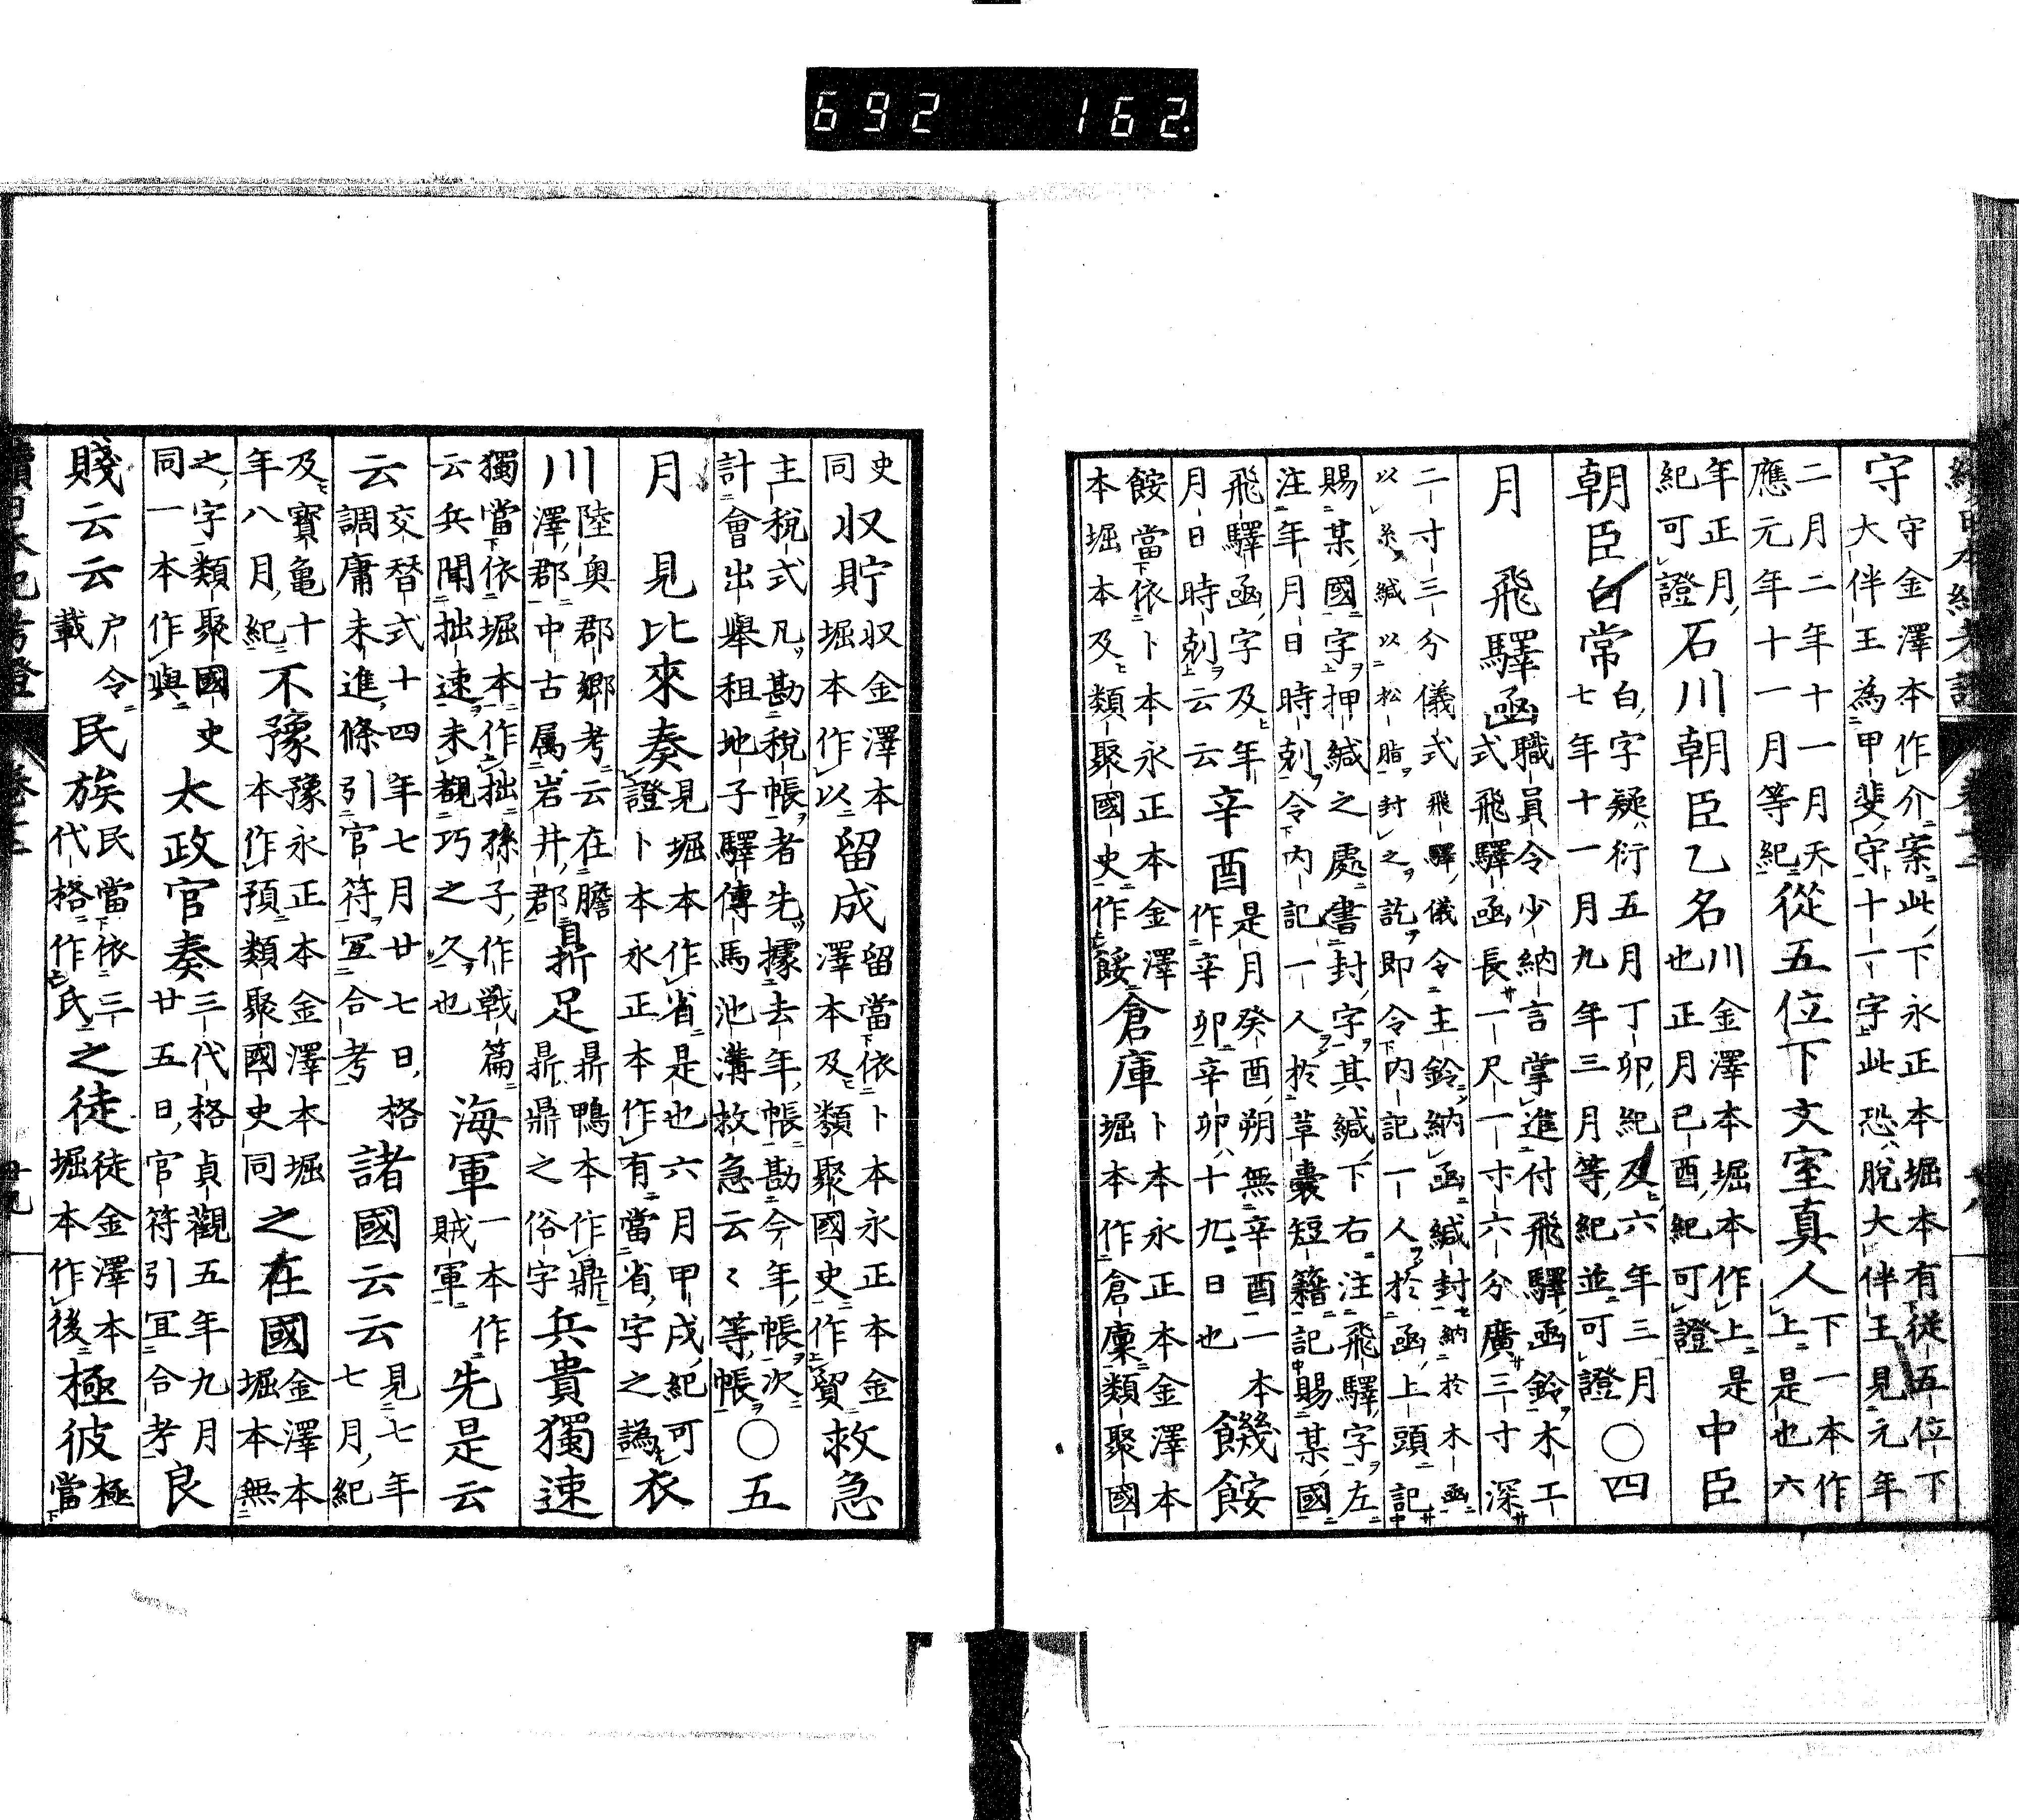 692 162.
守守金澤本作介案此下永正本堀本有從五位下
大伴王為甲斐守十一字此恐脫大伴王見元年
二月二年十一月天
應元年十一月等紀從五位下文室真人下一本作
上是也六
年正月
紀可證石川朝臣乙名川金澤本堀本作上是
也正月己酉紀可證中臣
朝臣白常白字疑衍五月丁卯紀及六年三月
七年十一月九年三月等紀並可證○四
月飛驛函職員令少納言掌進付飛驛函鈴木工
式飛驛函長一尺一寸六分廣三寸深
二寸三分儀式飛驛儀令主鈴納函緘封納於木函
以糸緘以松脂封之訖即令內記一人於函上頭記
賜某國字押緘之處書封字其緘下右注飛驛字左
注年月日時剋令內記一人於草囊短籍記賜某國
飛驛函字及年
月日時剋云云辛酉是月癸酉朔無辛酉一本
作辛卯辛卯十九日也饑餒
餒當依卜本永正本金澤
本堀本及類聚國史作餒倉庫卜本永正本金澤本
堀本作倉廩類聚國
史
同収貯収金澤本
堀本作以留成留當依卜本永正本金
澤本及類聚國史作貿救急
主稅式凡勘稅帳者先據去年帳勘今年帳次
計會出舉租地子驛傳馬池溝救急云々等帳○五
月見比來奏見堀本作省是也六月甲戌紀可
證卜本永正本作有當省字之譌衣
川陸奥郡郷考云在膽
澤郡中古属岩井郡折足鼎鴨本作鼎
鼎之俗字兵貴獨速
獨當依堀本作拙孫子作戦篇
云兵聞拙速未覩巧之久也海軍一本作
賊軍先是云
云交替式十四年七月廿七日格
調庸未進條引官符宜合考諸國云云見七年
七月紀
及寶亀十
年八月紀不豫豫永正本金澤本堀
本作預類聚國史同之在國金澤本
堀本無
之字類聚國史
同一本作與太政官奏三代格貞觀五年九月
廿五日官符引宜合考良
賤云云户令
載民族民當依三
代格作氏之徒徒金澤本
堀本作後極彼極
當